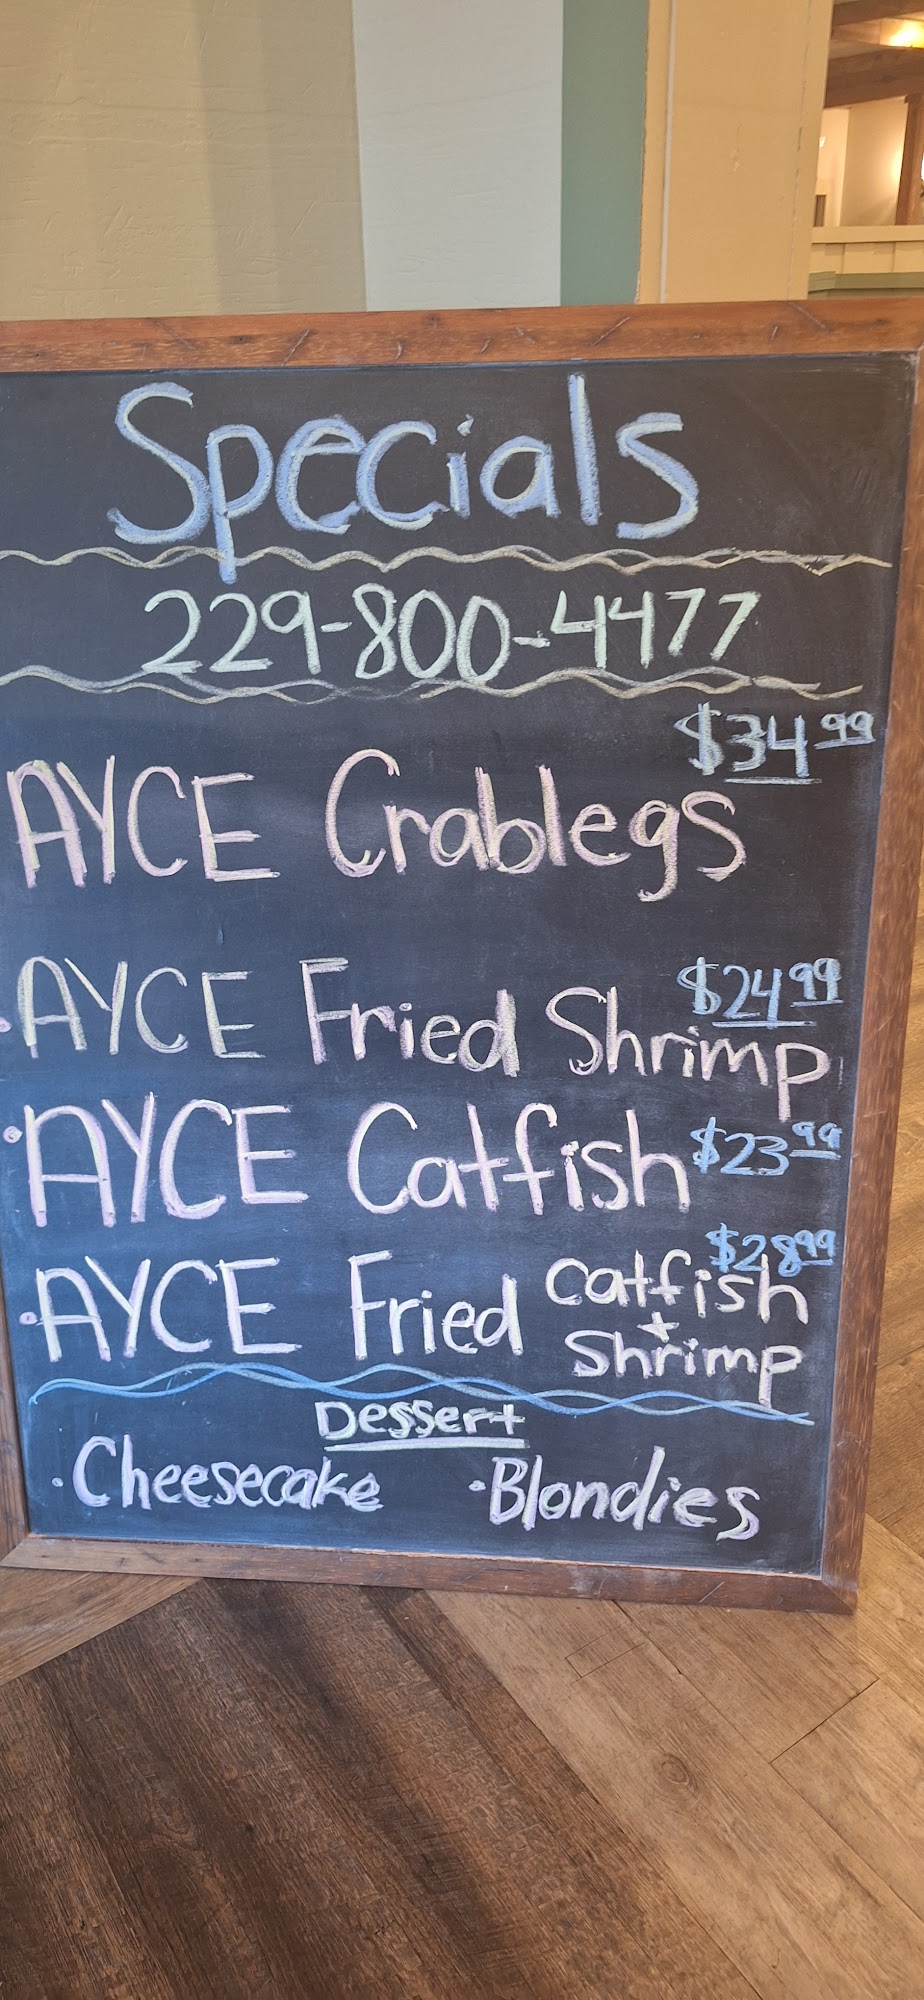 Specials
229-800-4477
$34.99
AYCE Crablegs
$24.99
• AYCE Fried Shrimp
• AYCE Catfish $23.99
$28.99
• AYCE Fried Catfish + Shrimp
Dessert
• Cheesecake • Blondies